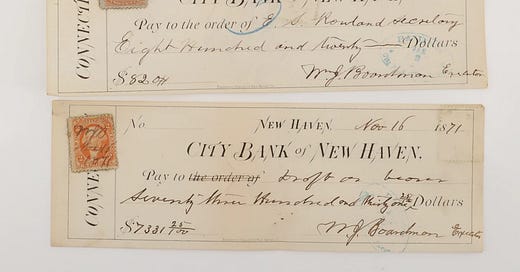 CONNECTIC
CITY BANK of NEW HAVEN.
Pay to the order of E. S. Rowland Secretary
Eight Hundred and twenty Dollars
$820
W. J. Boardman Executor
CONNE
No. NEW HAVEN, Nov 16 1871
CITY BANK of NEW HAVEN.
Pay to the order of Draft or bearer
Seventy three Hundred and thirty one 25/100 Dollars
$7331 25/100
W. J. Boardman Executor